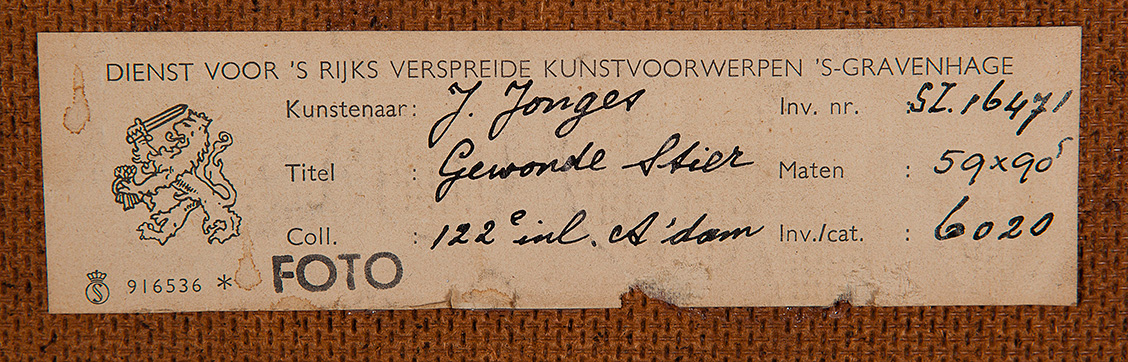 DIENST VOOR 'S RIJKS VERSPREIDE KUNSTVOORWERPEN 'S-GRAVENHAGE
Kunstenaar: J. Jonges Inv. nr. :SZ.16471
Titel : Gewonde Stier Maten : 59x90⁵
Coll. : 122e inl. A'dam Inv./cat. : 6020
S 916536 * FOTO